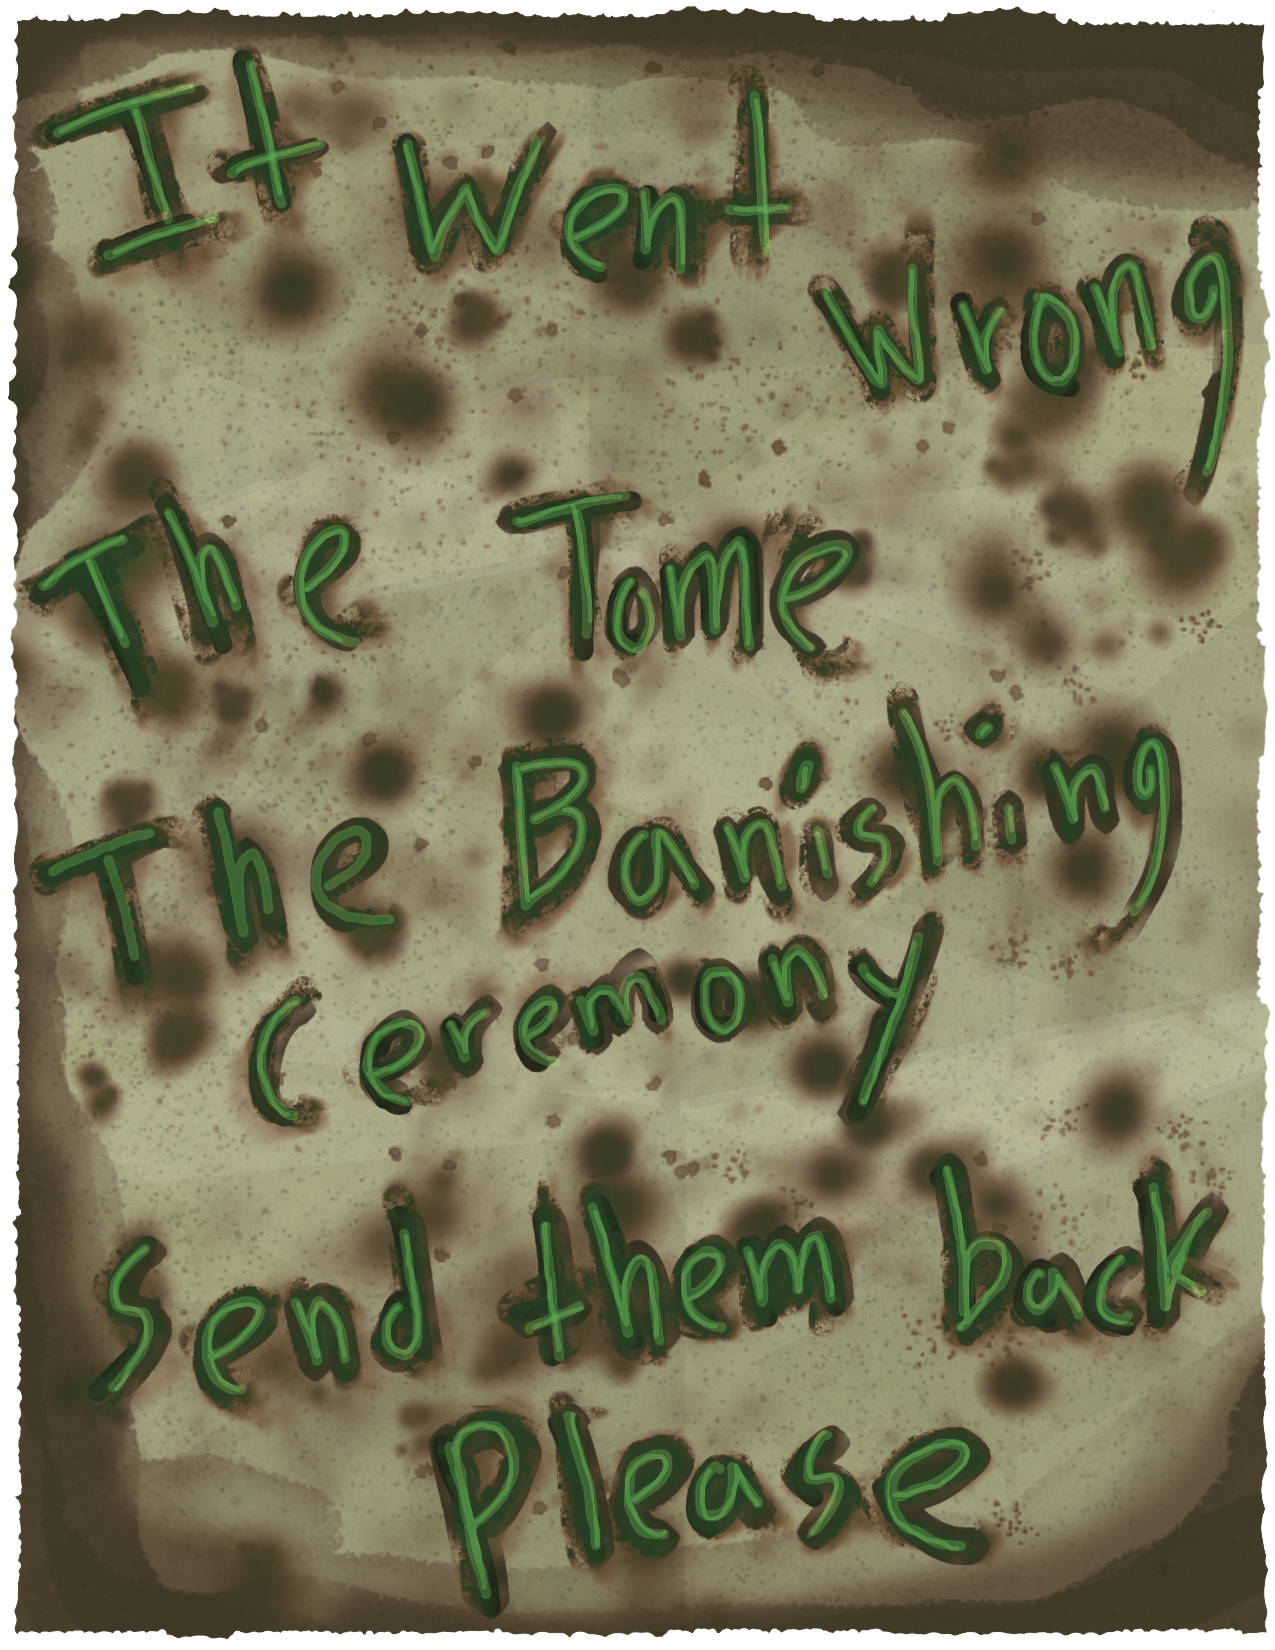 It Went
Wrong
The Tome
The Banishing
Ceremony
Send them back
Please